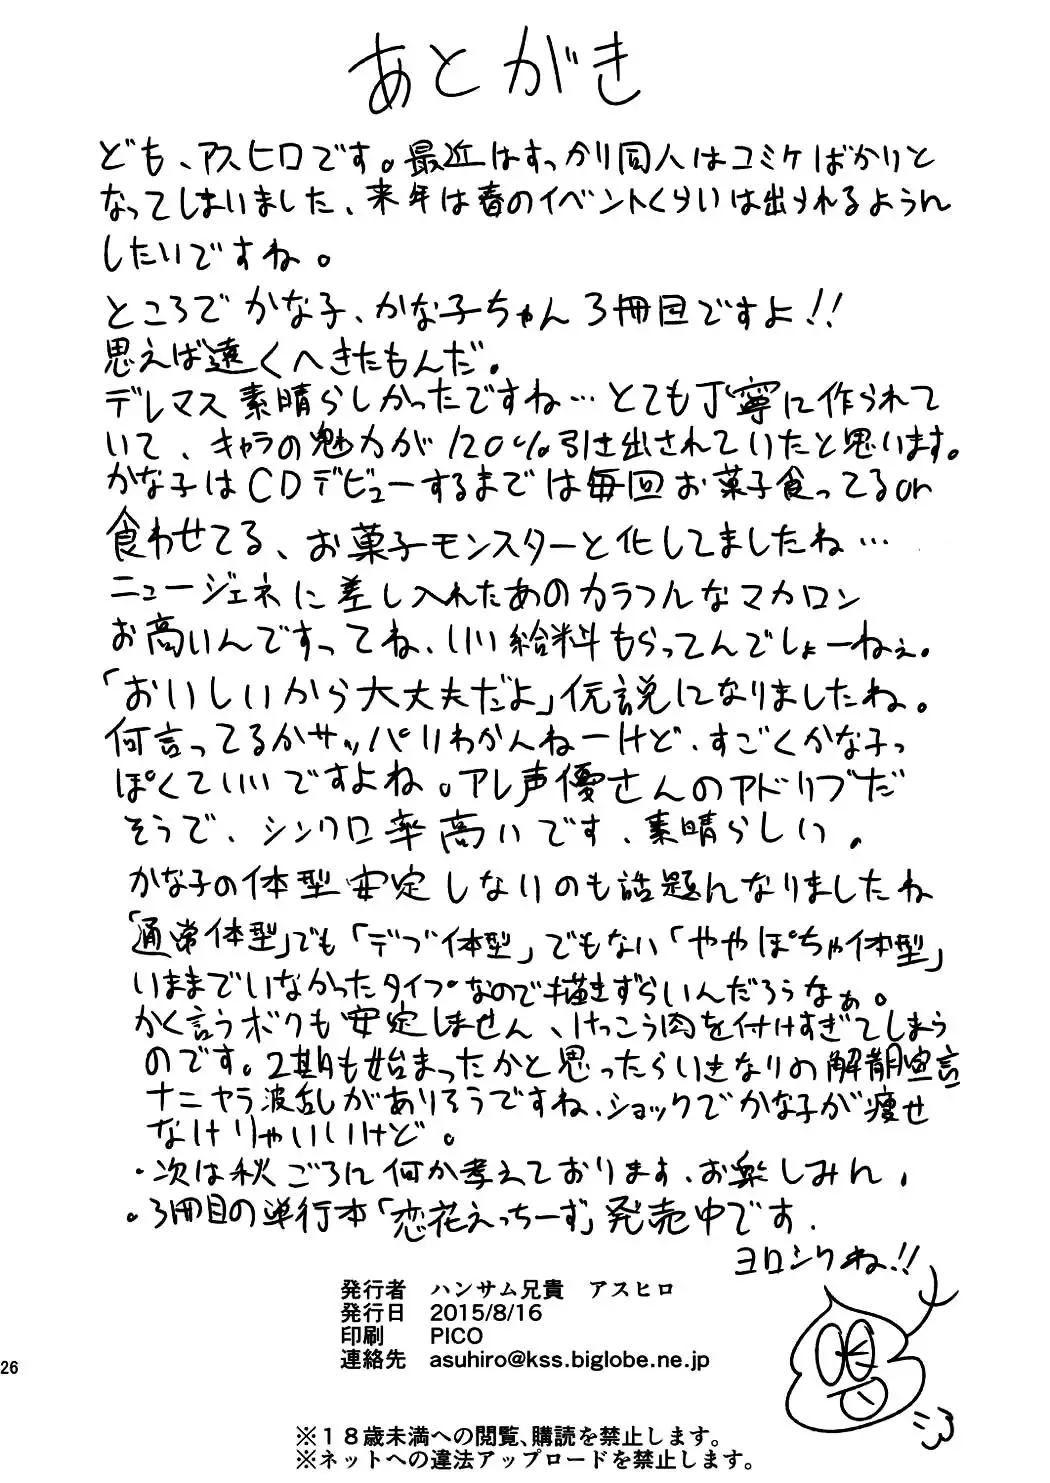 あとがき
ども、アスヒロです。最近はすっかり同人はコミケばかりと
なってしまいました、来年は春のイベントくらいは出られるように
したいですね。
ところでかな子、かな子ちゃん3冊目ですよ!!
思えば遠くへきたもんだ。
デレマス素晴らしかったですね…とても丁寧に作られて
いて、キャラの魅力が120%引き出されていたと思います。
かな子はCDデビューするまでは毎回お菓子食ってるor
食わせてる、お菓子モンスターと化してましたね…
ニュージェネに差し入れたあのカラフルなマカロン
お高いんですってね、いい給料もらってんでしょーねぇ。
「おいしいから大丈夫だよ」伝説になりましたね。
何言ってるかサッパリわかんねーけど、すごくかな子っ
ぽくていいですよね。アレ声優さんのアドリブだ
そうで、シンクロ率高いです、素晴らしい。
かな子の体型安定しないのも話題になりましたね
「通常体型」でも「デブ体型」でもない「ややぽちゃ体型」
いままでいなかったタイプなので描きずらいんだろうなぁ。
かく言うボクも安定しません、けっこう肉を付けすぎてしまう
のです。2期も始まったかと思ったらいきなりの解散宣言
ナニヤラ波乱がありそうですね、ショックでかな子が痩せ
なけりゃいいけど。
・次は秋ごろに何か考えております、お楽しみに、
。3冊目の単行本「恋花えっちーず」発売中です.
ヨロシクね!!
発行者 ハンサム兄貴 アスヒロ
発行日 2015/8/16
印刷 PICO
連絡先 asuhiro@kss.biglobe.ne.jp
26
※18歳未満への閲覧、購読を禁止します。
※ネットへの違法アップロードを禁止します。